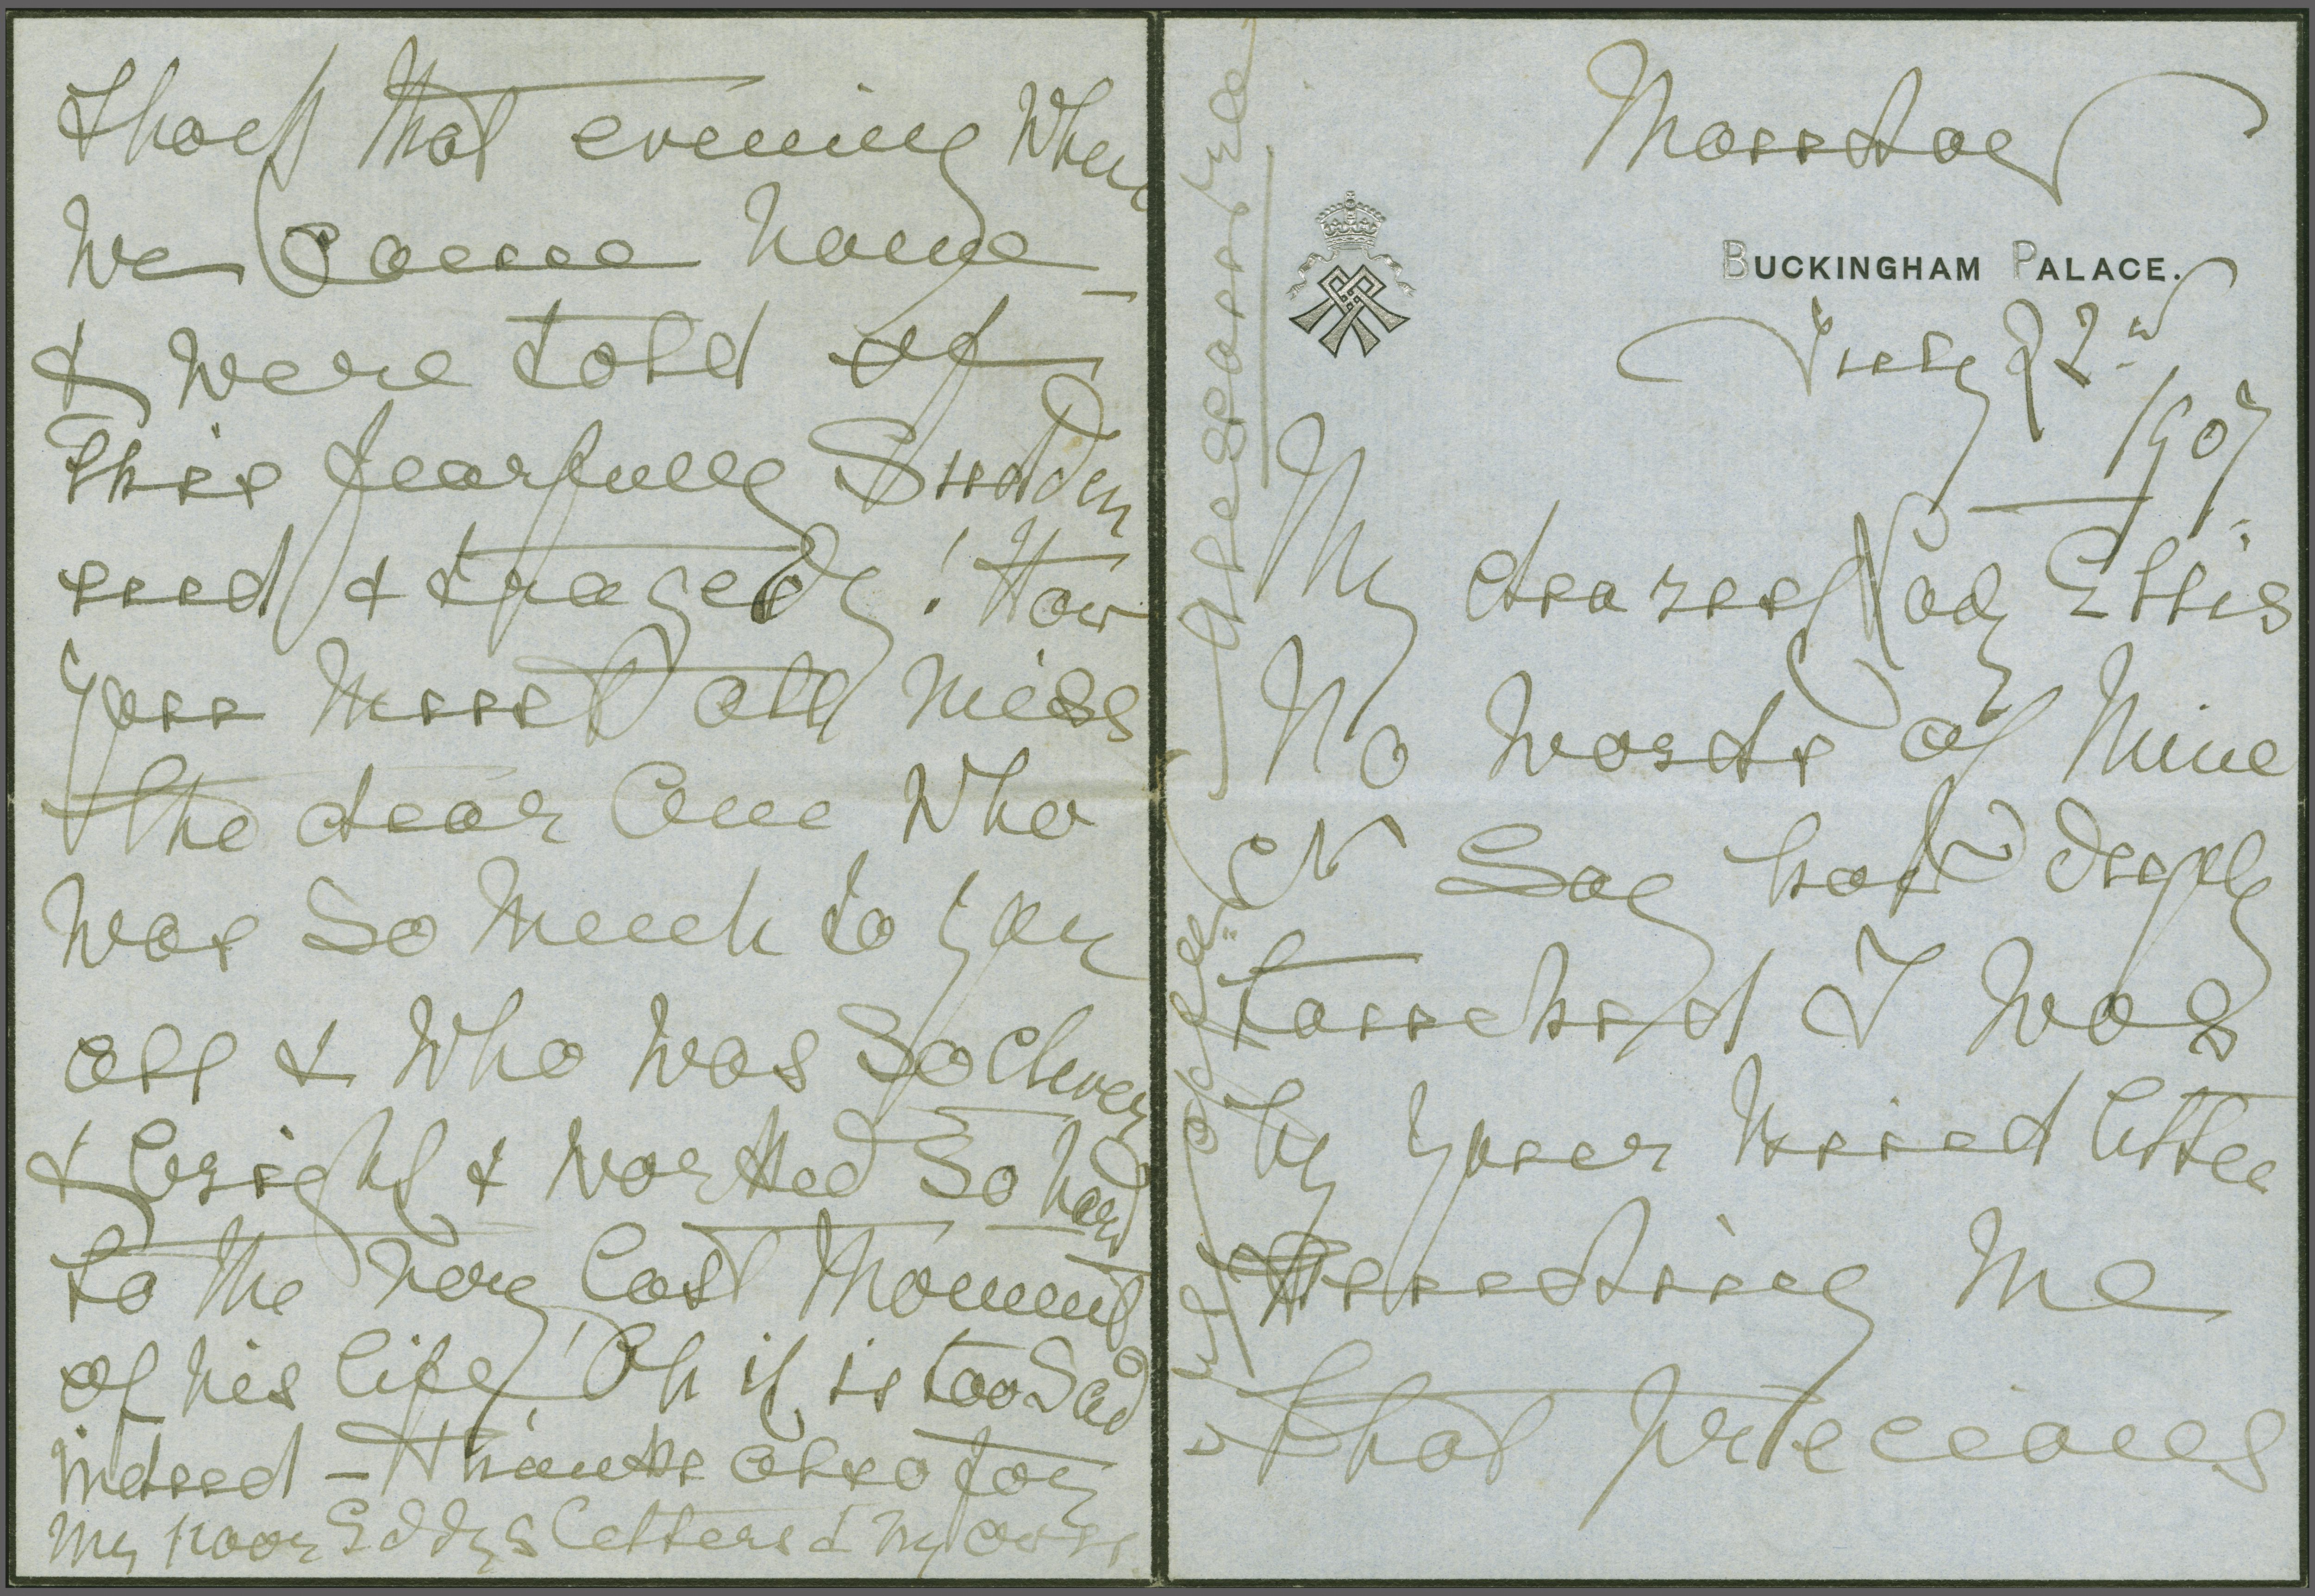 Monday
BUCKINGHAM PALACE.
July 22nd
1907.
My dearest Lady Ellis
No words of mine
can say how deeply
touched I was
by your kind letter
sending me
that precious
shock that evening when
we came home –
& were told of
this fearfully sudden
end & tragedy! How
you must all miss
the dear one who
was so much to you
all & who was so clever
& bright & worked so hard
to the very last moment
of his life! Oh it is too sad
indeed – Thanks also for
my poor Eddys letters & my own
Alexandra